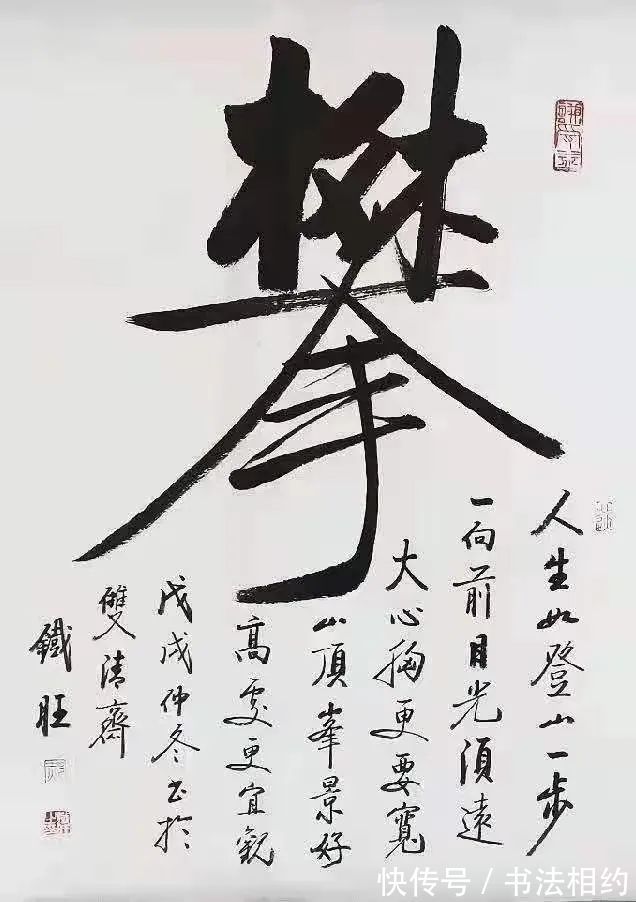 攀
人生如登山一步
一向前目光須遠
大心胸更要寬
山頂峯景好
高處更宜觀
戊戌仲冬书於
雙清齋
鐵旺
快传号 / 书法相约